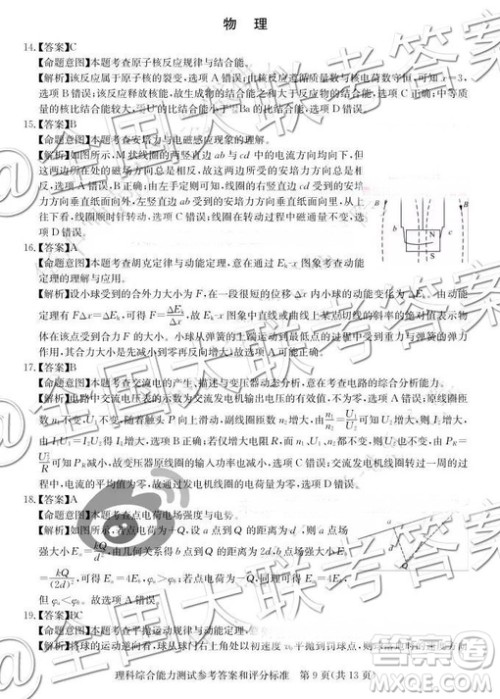 物　理
14.【答案】C
【命题意图】本题考查原子核反应规律与结合能。
【解析】该反应属于原子核的裂变，选项A错误；由核反应遵循质量数与核电荷数守恒，可知x=3，
选项B错误；核反应释放核能，故生成物的结合能大于反应物的结合能，选项C正确；中等质
量的核比结合能较大，U的比结合能小于Ba的比结合能，选项D错误。
15.【答案】B
【命题意图】本题考查安培力与电磁感应现象的理解。
【解析】如图所示，M状线圈的两竖直边ab与cd中的电流方向均向下，但
这两边所在处的磁场方向总是相反，故这两边所受的安培力方向总是相
反，选项A错误，B正确；由左手定则可知，线圈的右竖直边cd受到的安培
力方向垂直纸面向外，左竖直边ab受到的安培力方向垂直纸面向里，从上
往下看，线圈顺时针转动，选项C错误；线圈在转动过程中磁通量不变，选
项D错误。
16.【答案】A
【命题意图】本题考查胡克定律与动能定理，意在通过Ek-x图象考查动能
定理的理解与应用。
【解析】设小球受到的合外力大小为F，在一段很短的位移Δx内小球的动能变化为ΔEk，由动能
定理有FΔx=ΔEk，可得F=ΔEk/Δx，故Ek-x图象中直线或曲线上某处切线的斜率的绝对值表示物
体在该点受到的合外力的大小。小球从弹簧的上端运动到最低点的过程中受到重力与弹簧的弹力
作用，其合力先减小到零再反向增大，故选项A可能正确。
17.【答案】D
【命题意图】本题考查交流电的产生、描述与变压器动态分析，意在考查电路的综合分析能力。
【解析】电路中交流电压表的示数为交流电压的有效值，选项A错误；发电机线圈的转速n不变，则
U1不变，随着触头P向上滑动，副线圈匝数n2增大，由n1/n2=U1/U2可知U2增大，则I2增大，
由I1U1=I2U2得I1增大，选项B正确；若仅增大电阻R，而n1、n2不变，则U2不变，由PR=
U2²/R可知PR减小，故变压器原线圈的输入功率也减小，选项C错误；交流发电机线圈转动一
周，电流方向改变两次，故通过发电机线圈的交流电方向每秒改变2n次，选项D错误。
18.【答案】A
【命题意图】本题考查点电荷电场强度与电势。
【解析】如图所示，若点电荷带正电荷为+Q，设a点到
场强大小E=kQ/d²，由几何关系得b点到点电荷Q的距离为2d，b点场强大小
=kQ/(2d)²，可得E=4E，且φa>φb；若点电荷带负电荷为-Q，同理可得E=4E，
但φa<φb。故选项A正确。
19.【答案】BC
【命题意图】本题考查平抛运动规律与动能定理。
理科综合能力测试参考答案和评分标准　第9页(共13页)
@全国大联考答案